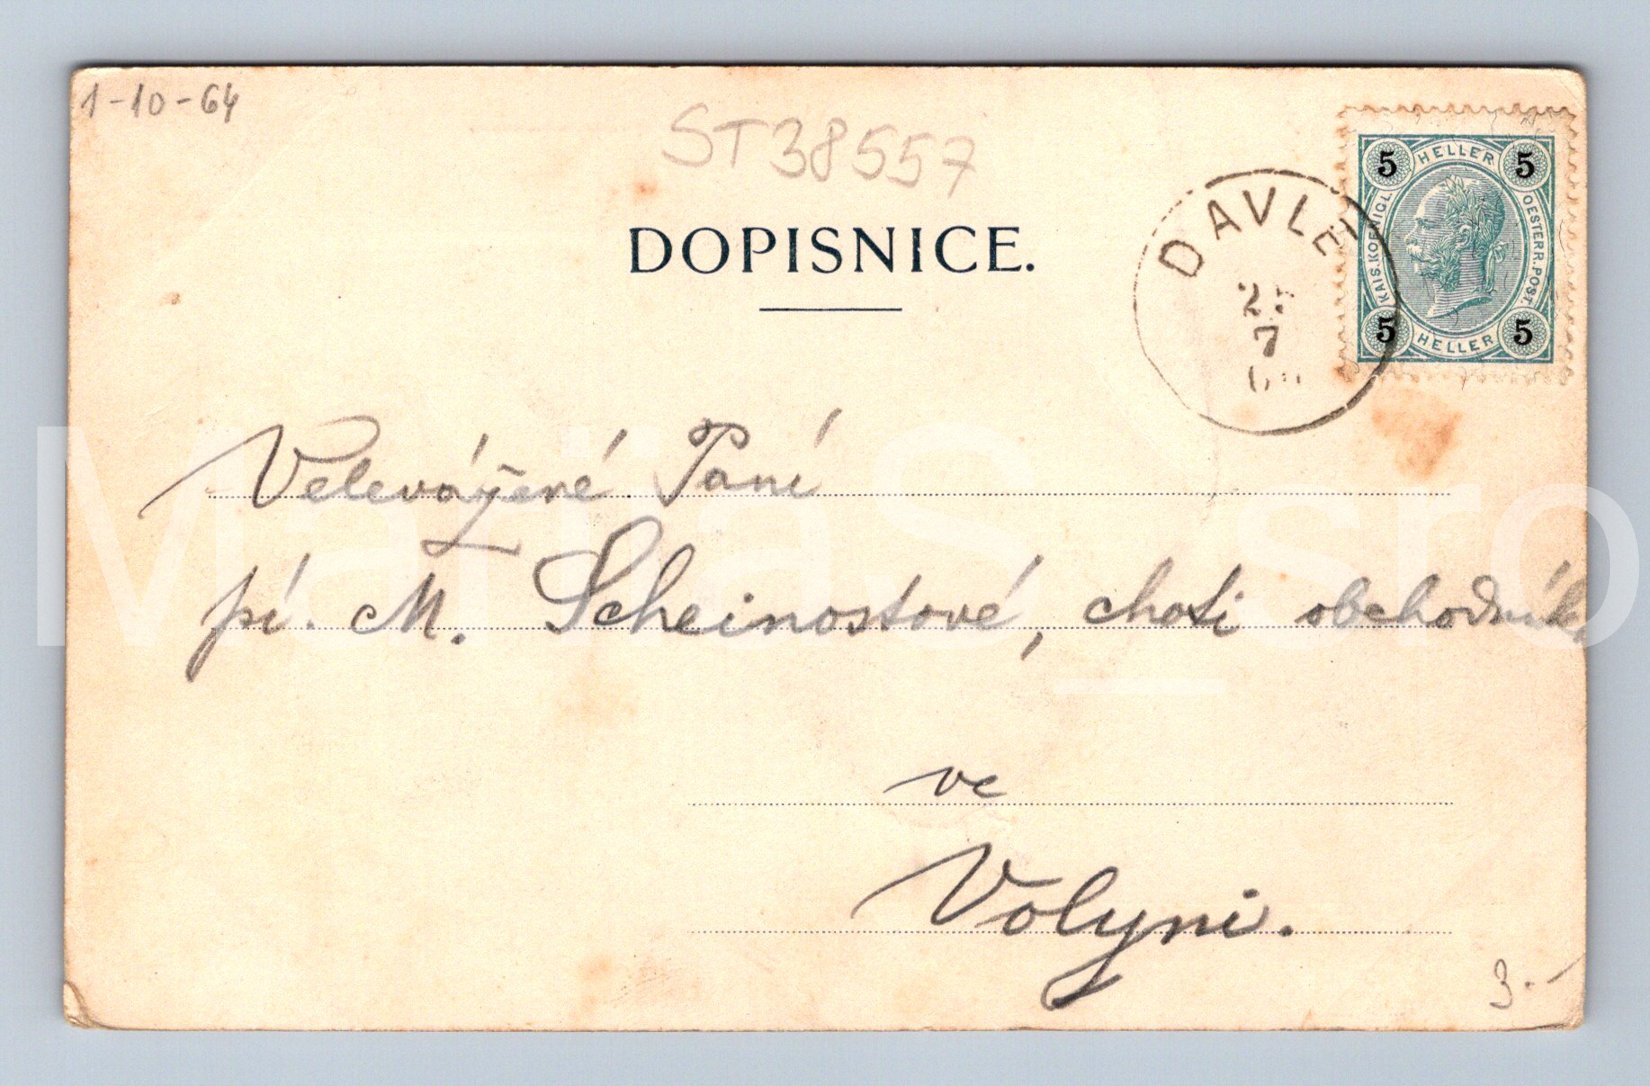 1-10-64
ST38557
DOPISNICE.
DAVLE
7
5 HELLER 5
KAIS. KOENIGL. OESTERR. POST.
5 HELLER 5
Velevážené Paní
pí. M. Scheinostové, choti obchodníka
ve
Volyni.
3.-
MariaS_sro